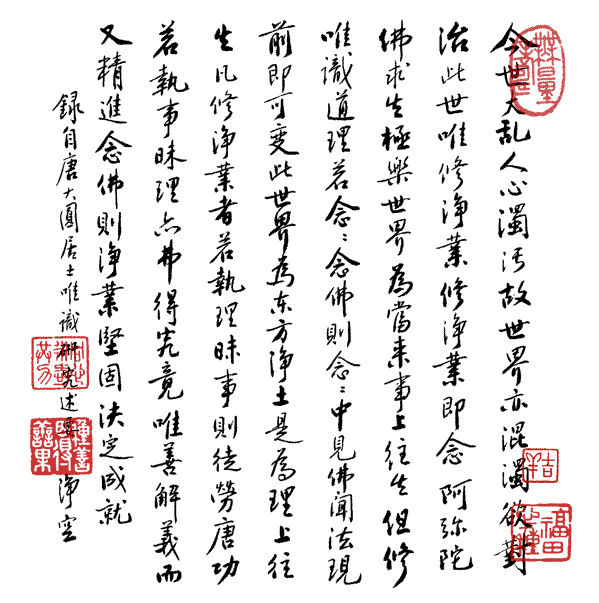 今世大乱人心濁污故世界亦混濁欲對
治此世唯修淨業修淨業即念阿弥陀
佛求生極樂世界為當来事上往生但修
唯識道理若念〻念佛則念〻中見佛聞法現
前即可变此世界為东方淨土是為理上往
生凡修淨業者若執理昧事則徒劳唐功
若執事昧理亦弗得究竟唯善解義而
又精進念佛則淨業堅固決定成就
録自唐大圓居士唯識研究述要 淨空
無量壽
吉祥